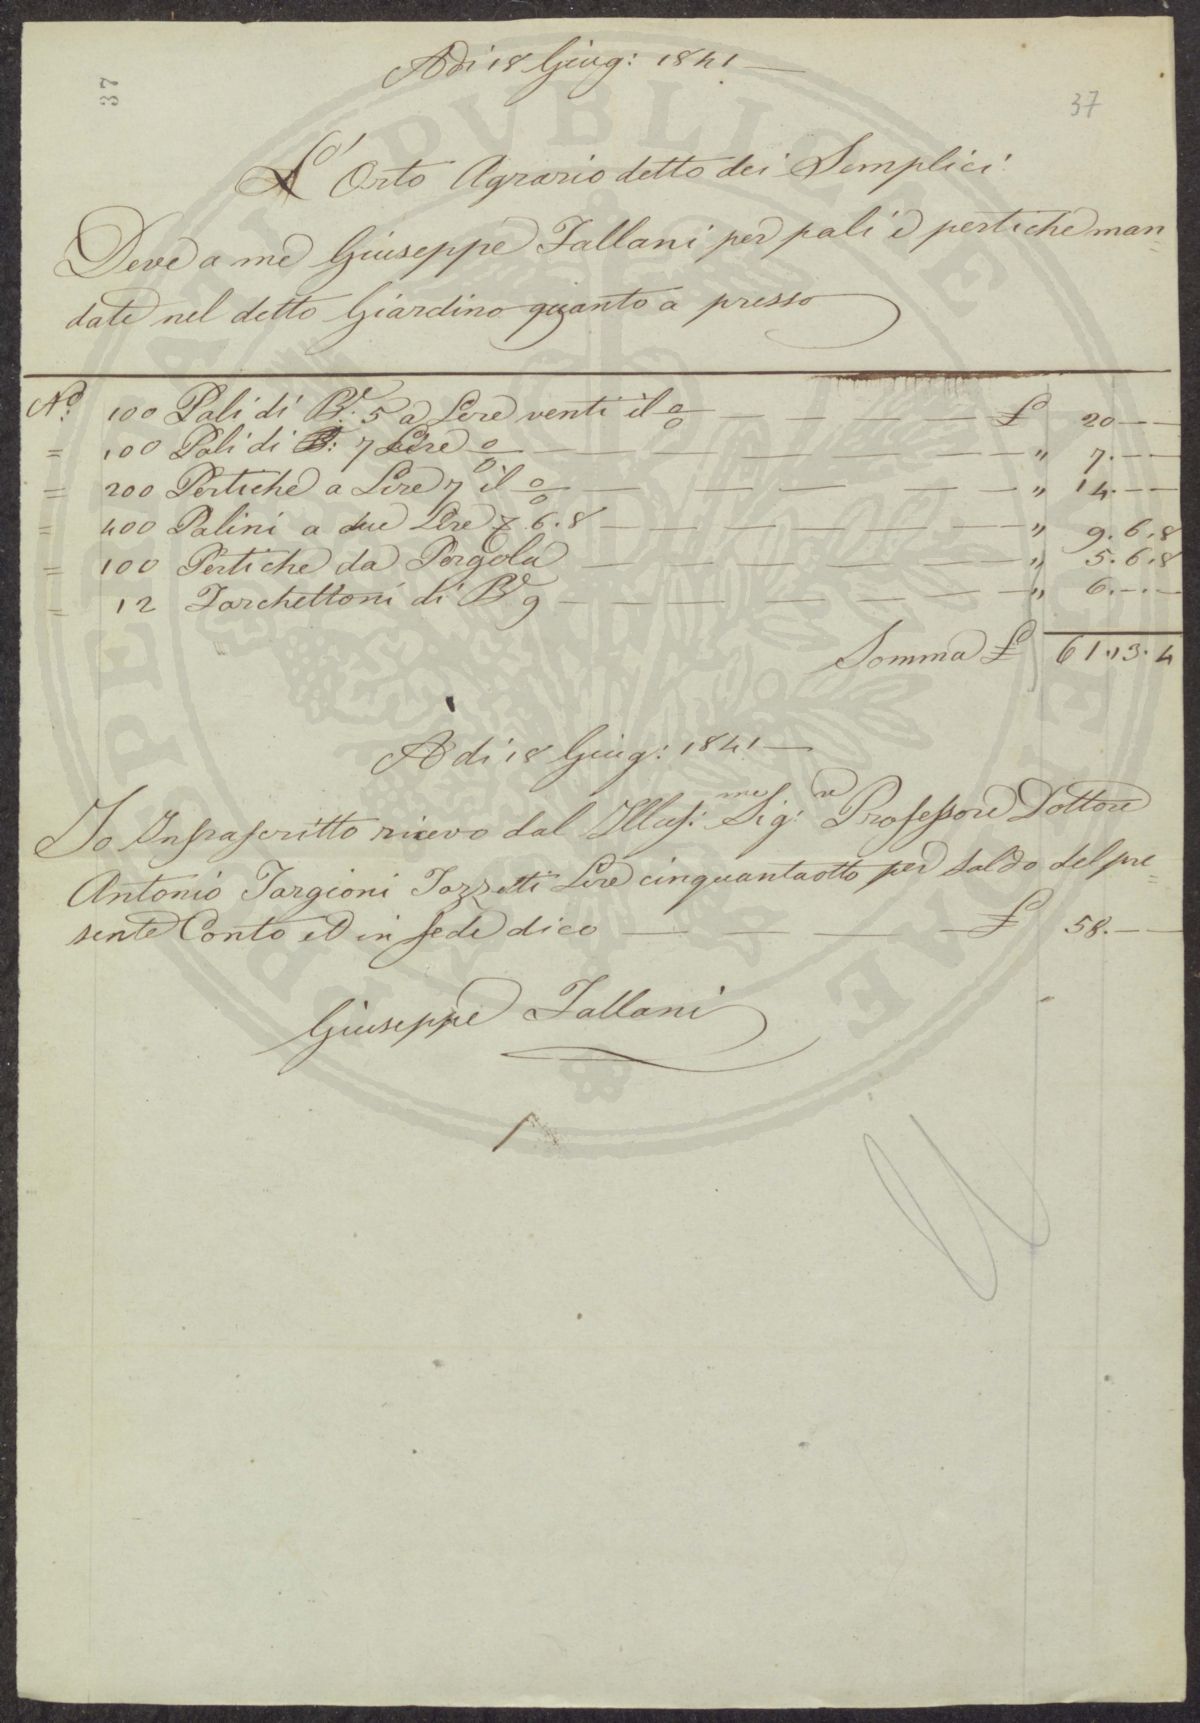 Adi 18 Giug: 1841
37
37
L' Orto Agrario detto dei Semplici
Deve a me Giuseppe Fallani per pali e pertiche man=
date nel detto Giardino quanto a presso
No. 100 Pali di Ba: 5 a Lire venti il % — — — — £ 20 — —
= 100 Pali di B: 7 Lire % — — — — — " 7. — —
= 200 Pertiche a Lire 7 il % — — — — " 14. — —
= 400 Palini a due Lire 7. 6. 8 — — — — " 9. 6. 8
= 100 Pertiche da Pergola — — — — " 5. 6. 8
= 12 Forchettoni di Ba 9 — — — — " 6. — . —
Somma £ 61. 13. 4
A di 18 Giug: 1841 —
Io Infrascritto ricevo dal Illus:me Sig:re Professore Dottore
Antonio Targioni Tozzetti Lire cinquantaotto per saldo del pre=
sente Conto ed in fede dico — — — £ 58. — —
Giuseppe Fallani
PUBLICAE